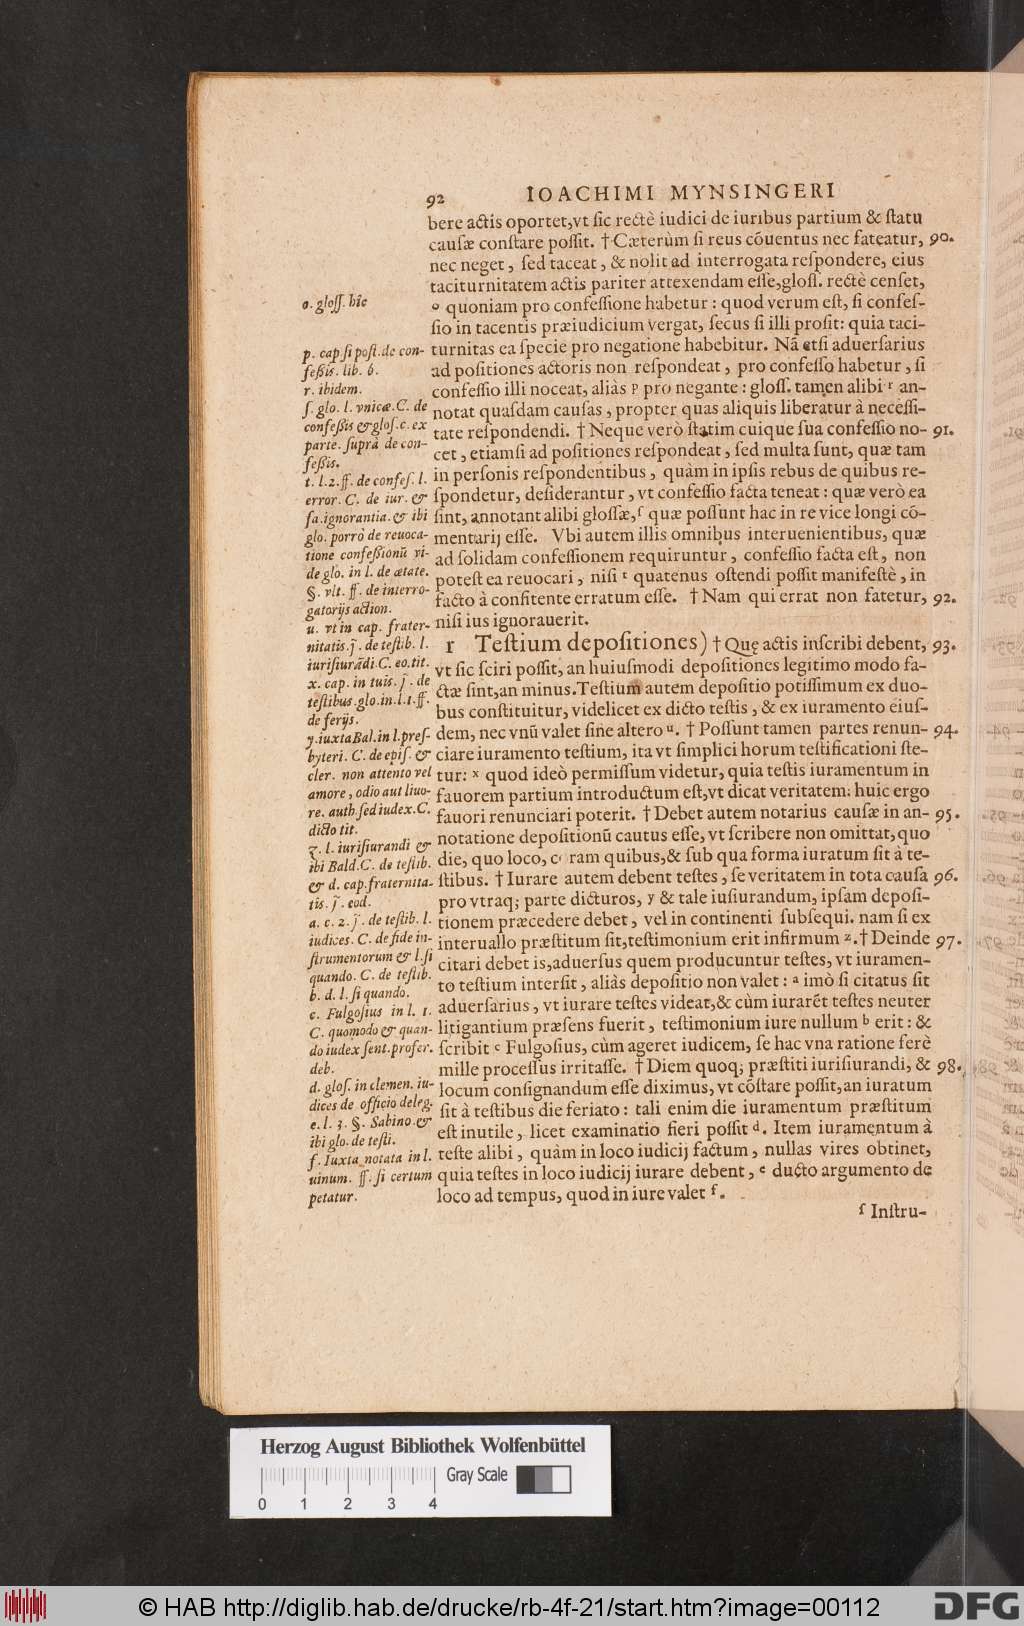 92 IOACHIMI MYNSINGERI
bere actis oportet,vt sic rectè iudici de iuribus partium & statu
causæ constare possit. † Cæterùm si reus cõuentus nec fateatur, 90.
nec neget, sed taceat, & nolit ad interrogata respondere, eius
taciturnitatem actis pariter attexendam esse,gloss. rectè censet,
o quoniam pro confessione habetur : quod verum est, si confes-
sio in tacentis præiudicium vergat, secus si illi prosit: quia taci-
turnitas ea specie pro negatione habebitur. Nã etsi aduersarius
ad positiones actoris non respondeat, pro confesso habetur, si
confessio illi noceat, aliàs p pro negante : gloss. tamen alibi r an-
notat quasdam causas, propter quas aliquis liberatur à necessi-
tate respondendi. † Neque verò statim cuique sua confessio no- 91.
cet, etiamsi ad positiones respondeat, sed multa sunt, quæ tam
in personis respondentibus, quàm in ipsis rebus de quibus re-
spondetur, desiderantur, vt confessio facta teneat : quæ verò ea
sint, annotant alibi glossæ,ſ quæ possunt hac in re vice longi cõ-
mentarij esse. Vbi autem illis omnibus interuenientibus, quæ
ad solidam confessionem requiruntur, confessio facta est, non
potest ea reuocari, nisi t quatenus ostendi possit manifestè, in
facto à confitente erratum esse. † Nam qui errat non fatetur, 92.
nisi ius ignorauerit.
r Testium depositiones) † Quę actis inscribi debent, 93.
vt sic sciri possit, an huiusmodi depositiones legitimo modo fa-
ctæ sint,an minus. Testium autem depositio potissimum ex duo-
bus constituitur, videlicet ex dicto testis, & ex iuramento eius-
dem, nec vnũ valet sine altero u. † Possunt tamen partes renun- 94.
ciare iuramento testium, ita vt simplici horum testificationi ste-
tur: x quod ideò permissum videtur, quia testis iuramentum in
fauorem partium introductum est,vt dicat veritatem: huic ergo
fauori renunciari poterit. † Debet autem notarius causæ in an- 95.
notatione depositionũ cautus esse, vt scribere non omittat, quo
die, quo loco, c ram quibus,& sub qua forma iuratum sit à te-
stibus. † Iurare autem debent testes, se veritatem in tota causa 96.
pro vtraq; parte dicturos, y & tale iusiurandum, ipsam deposi-
tionem præcedere debet, vel in continenti subsequi. nam si ex
interuallo præstitum sit,testimonium erit infirmum z. † Deinde 97.
citari debet is,aduersus quem producuntur testes, vt iuramen-
to testium intersit, aliàs depositio non valet : a imò si citatus sit
aduersarius, vt iurare testes videat,& cùm iurarẽt testes neuter
litigantium præsens fuerit, testimonium iure nullum b erit : &
scribit c Fulgosius, cùm ageret iudicem, se hac vna ratione ferè
mille processus irritasse. † Diem quoq; præstiti iurisiurandi, & 98.
locum consignandum esse diximus, vt cõstare possit,an iuratum
sit à testibus die feriato : tali enim die iuramentum præstitum
est inutile, licet examinatio fieri possit d. Item iuramentum à
teste alibi, quàm in loco iudicij factum, nullas vires obtinet,
quia testes in loco iudicij iurare debent, e ducto argumento de
loco ad tempus, quod in iure valet f.
ſ Instru-
o. gloss. hîc
p. cap. si post. de con-
feßis. lib. 6.
r. ibidem.
ſ. glo. l. vnicæ. C. de
confeßis & glos. c. ex
parte. suprà de con-
feßis.
t. l. 2. ff. de confes. l.
error. C. de iur. &
fa. ignorantia. & ibi
glo. porrò de reuoca-
tione confeßionũ vi-
de glo. in l. de ætate.
§. vlt. ff. de interro-
gatorijs action.
u. vt in cap. frater-
nitatis. j̃. de testib. l.
iurisiurãdi. C. eo. tit.
x. cap. in tuis. j̃. de
testibus. glo. in. l. 1. ff.
de ferijs.
y. iuxta Bal. in l. pres-
byteri. C. de epis. &
cler. non attento vel
amore, odio aut liuo-
re. auth. sed iudex. C.
dicto tit.
z. l. iurisiurandi &
ibi Bald. C. de testib.
& d. cap. fraternita-
tis. j̃. eod.
a. c. 2. j̃. de testib. l.
iudices. C. de fide in-
strumentorum & l. si
quando. C. de testib.
b. d. l. si quando.
c. Fulgosius in l. 1.
C. quomodo & quan-
do iudex sent. profer.
deb.
d. glos. in clemen. iu-
dices de officio deleg.
e. l. 3. §. Sabino. &
ibi glo. de testi.
f. Iuxta notata in l.
uinum. ff. si certum
petatur.
Herzog August Bibliothek Wolfenbüttel
Gray Scale
0 1 2 3 4
© HAB http://diglib.hab.de/drucke/rb-4f-21/start.htm?image=00112
DFG